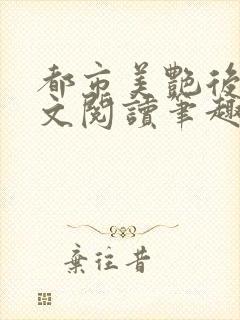 都市美艷後
文閱讀筆趣
棄往昔